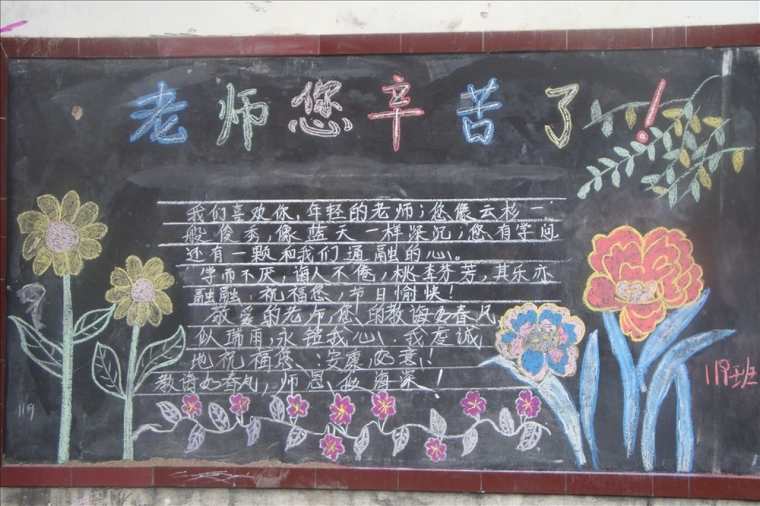 老师您辛苦了!
我们喜欢你,年轻的老师;您像云杉一
般俊秀,像蓝天一样深沉;您有学问
还有一颗和我们通融的心。
学而不厌,诲人不倦,桃李芬芳,其乐亦
融融。祝福您,节日愉快!
敬爱的老师,您的教诲如春风
似瑞雨,永铭我心。我虔诚
地祝福您:安康如意!
教诲如春风,师恩似海深!
119班
119